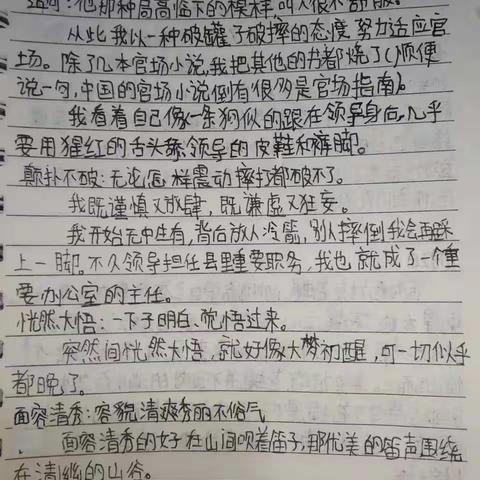 他那种高高临下的模样叫人很不舒服。
从此我以一种破罐子破摔的态度努力适应官
场。除了几本官场小说,我把其他的书都烧了(顺便
说一句,中国的官场小说倒有很多是官场指南)。
我看着自己像一条狗似的跟在领导身后,几乎
要用猩红的舌头舔领导的皮鞋和裤脚。
颠扑不破:无论怎样震动摔打都破不了。
我既谨慎又放肆,既谦虚又狂妄。
我开始无中生有,背后放人冷箭,别人摔倒我会再踩
上一脚。不久领导担任县里重要职务,我也就成了一个重
要办公室的主任。
恍然大悟:一下子明白、觉悟过来。
突然间恍然大悟,就好像大梦初醒,可一切似乎
都晚了。
面容清秀:容貌清爽秀丽不俗气
面容清秀的女子在山间吹着笛子,那优美的笛声围绕
在清幽的山谷。